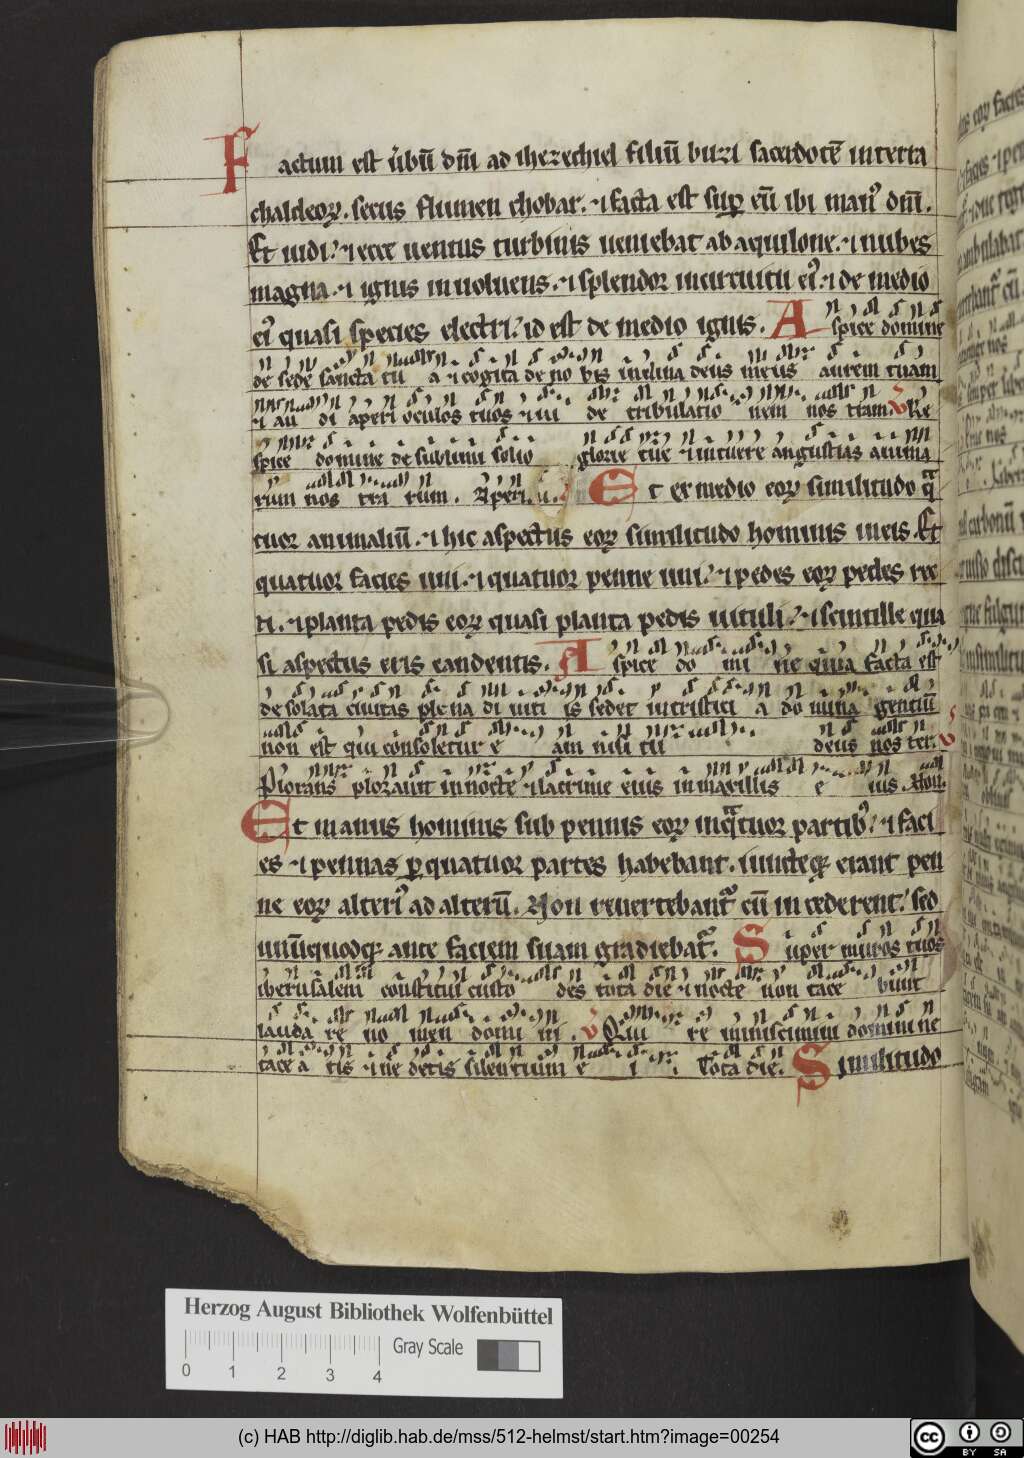 Factum est ůbū dn̄i ad ihezechiel filiū buzi sacerdotē in terra
chaldeoꝝ. secus flumen chobar. ⁊ facta est sup̱ eū ibi man᷒ dn̄i.
Et uidi. ⁊ ecce uentus turbinis ueniebat ab aquilone. ⁊ nubes
magna. ⁊ ignis inuoluens. ⁊ splendor in circuitu ei᷒. ⁊ de medio
ei᷒ quasi species electri. id est de medio ignis. Aspice domine
de sede sancta tu a ⁊ cogita de no bis inclina deus meus aurem tuam
⁊ au di aperi oculos tuos ⁊ ui de tribulatio nem nos tram. v Re
spice domine de sublimi solio glorie tue ⁊ intuere angustias anima
rum nos tra rum. Aperi. Et ex medio eoꝝ similitudo qͣ
tuor animaliū. ⁊ hic aspectus eoꝝ similitudo hominis in eis. Et
quatuor facies uni. ⁊ quatuor penne uni. ⁊ pedes eoꝝ pedes rec
ti. ⁊ planta pedis eoꝝ quasi planta pedis uituli. ⁊ scintille qua
si aspectus eris candentis. Aspice do mi ne quia facta est
desolata ciuitas plena di uiti is sedet in tristici a do mina gentiū
non est qui consoletur e am nisi tu deus nos ter. v
Plorans plorauit in nocte ⁊ lacrime eius in maxillis e ius. Non.
Et manus hominis sub pennis eoꝝ in qͣtuor partib᷒. ⁊ faci
es ⁊ pennas ꝑ quatuor partes habebant. iuncteqꝫ erant pen
ne eoꝝ alteri᷒ ad alterū. Non reuertebant᷑ cū incederent. sed
unūquodqꝫ ante faciem suam gradiebat᷑. Super muros tuos
iherusalem constitui custo des tota die ⁊ nocte non tace bunt
lauda re no men domi ni. v Qui re miniscimini domini ne
tace a tis ⁊ ne detis silentium e i. Tota die. Similitudo
Herzog August Bibliothek Wolfenbüttel
Gray Scale
0 1 2 3 4
(c) HAB http://diglib.hab.de/mss/512-helmst/start.htm?image=00254
cc BY SA